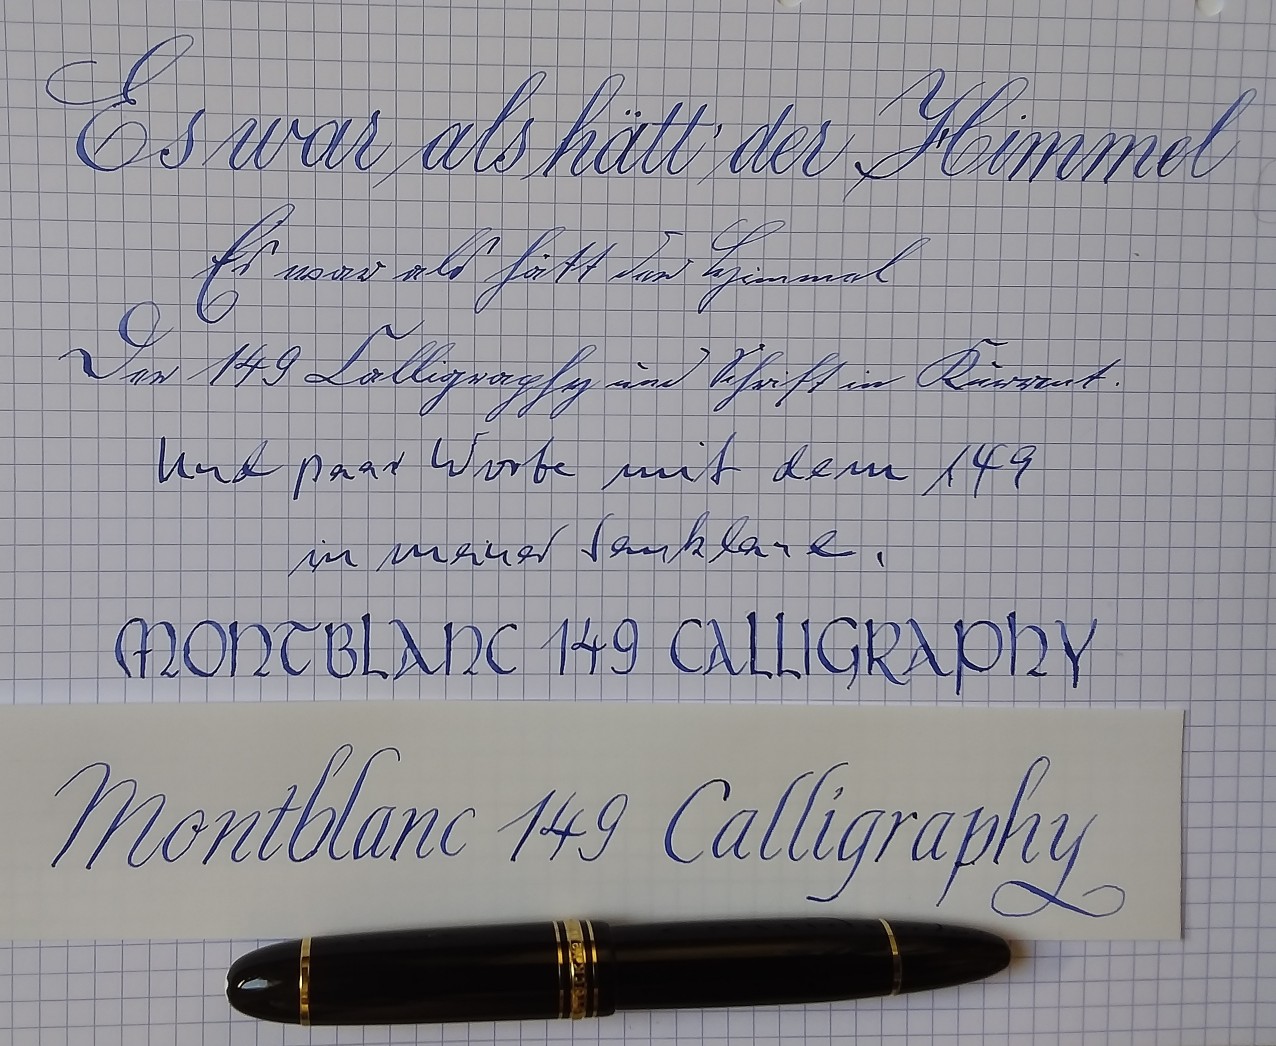 Es war, als hätt' der Himmel
Es war als hätt der Himmel
Der 149 Calligraphy und Schrift in Kurrent.
Und paar Worte mit dem 149
in meiner Sauklaue.
MONTBLANC 149 CALLIGRAPHY
Montblanc 149 Calligraphy